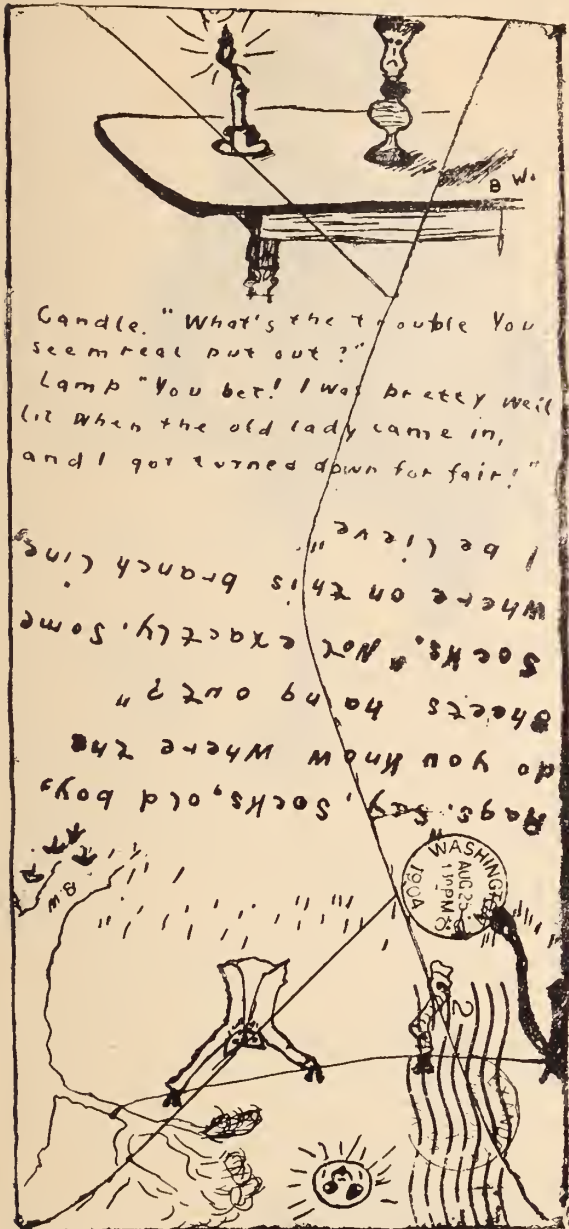 B W.
Candle. "What's the trouble You
seem real put out?"
Lamp "You bet! I was pretty well
lit when the old lady came in,
and I got turned down for fair!"
Rags. Say, Socks, old boy,
do you know where the
sheets hang out?"
Socks. "Not exactly. Some
where on this branch line
I believe".
B W
WASHINGTON
AUG 25
11 PM
1904
2